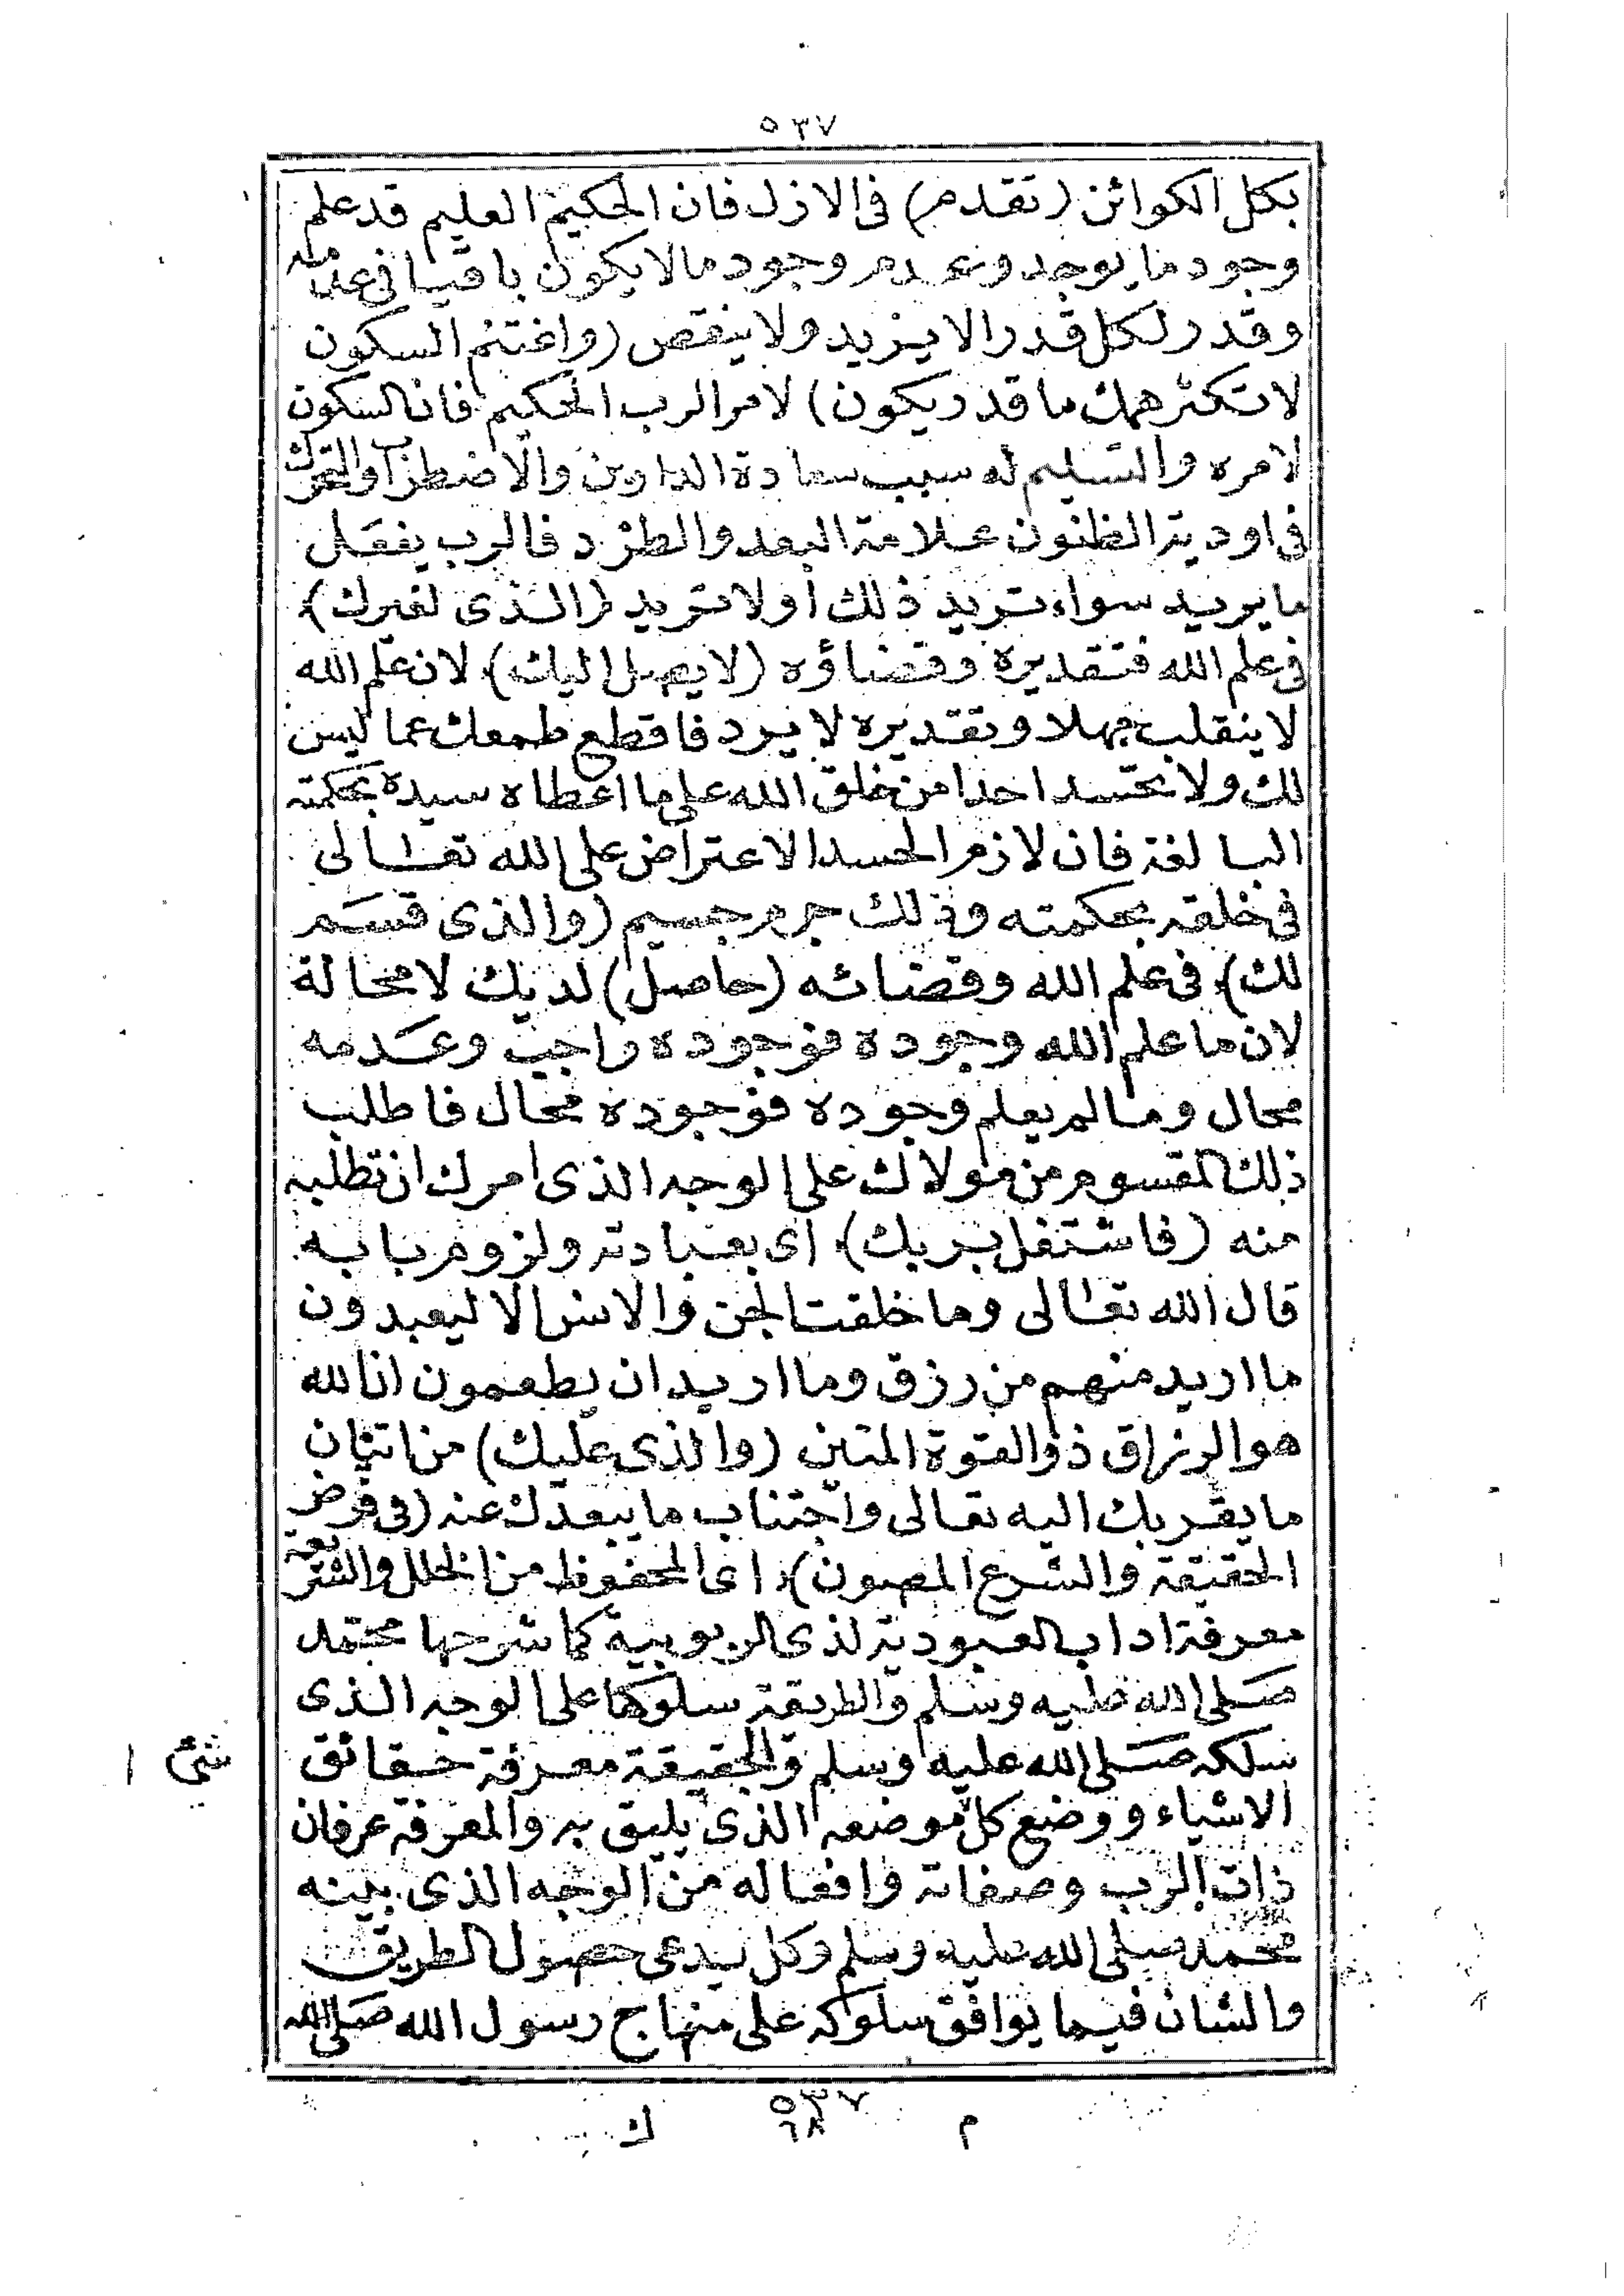 ٥٣٧
بكل الكوائن (تقدم) فى الازل فان الحكيم العليم قد علم
وجود ما يوجد وعدم وجود مالا يكون باقيا فى عدمه
وقدر لكل قدرا لا يزيد ولا ينقص (واغتنم السكون
لا تكثر همك ما قدر يكون) لامر الرب الحكيم فان السكون
لامره والتسليم له سبب سعادة الدارين والاضطراب والتحرك
فى اودية الظنون علامة البعد والطرد فالرب يفعل
ما يريد سواء تريد ذلك او لا تريد (الذى لغيرك)
فى علم الله فتقديره وقضاؤه (لا يصل اليك) لان علم الله
لا ينقلب جهلا وتقديره لا يرد فاقطع طمعك عما ليس
لك ولا تحسد احدا من خلق الله على ما اعطاه سيده بحكمته
البالغة فان لازم الحسد الاعتراض على الله تعالى
فى خلقه بحكمته وذلك جرم جسيم (والذى قسم
لك) فى علم الله وقضائه (حاصل) لديك لا محالة
لان ما علم الله وجوده فوجوده واجب وعدمه
محال وما لم يعلم وجوده فوجوده محال فاطلب
ذلك المقسوم من مولاك على الوجه الذى امرك ان تطلبه
منه (فاشتغل بربك) اى بعبادته ولزوم بابه
قال الله تعالى وما خلقت الجن والانس الا ليعبدون
ما اريد منهم من رزق وما اريد ان يطعمون ان الله
هو الرزاق ذو القوة المتين (والذى عليك) من اتيان
ما يقربك اليه تعالى واجتناب ما يبعدك عنه (فى فرض
الحقيقة والشرع المصون) اى المحفوظ من الخلل والشريعة
معرفة اداب العبودية لذى الربوبية كما شرحها محمد
صلى الله عليه وسلم والطريقة سلوكها على الوجه الذى
سلكه صلى الله عليه وسلم والحقيقة معرفة حقائق
شئ ١
الاشياء ووضع كل موضعه الذى يليق به والمعرفة عرفان
ذات الرب وصفاته وافعاله من الوجه الذى بينه
محمد صلى الله عليه وسلم وكل يدعى حصول الطريق
والشان فيما يوافق سلوكه على منهاج رسول الله صلى الله
٥٣٧
م ٦٨ ك